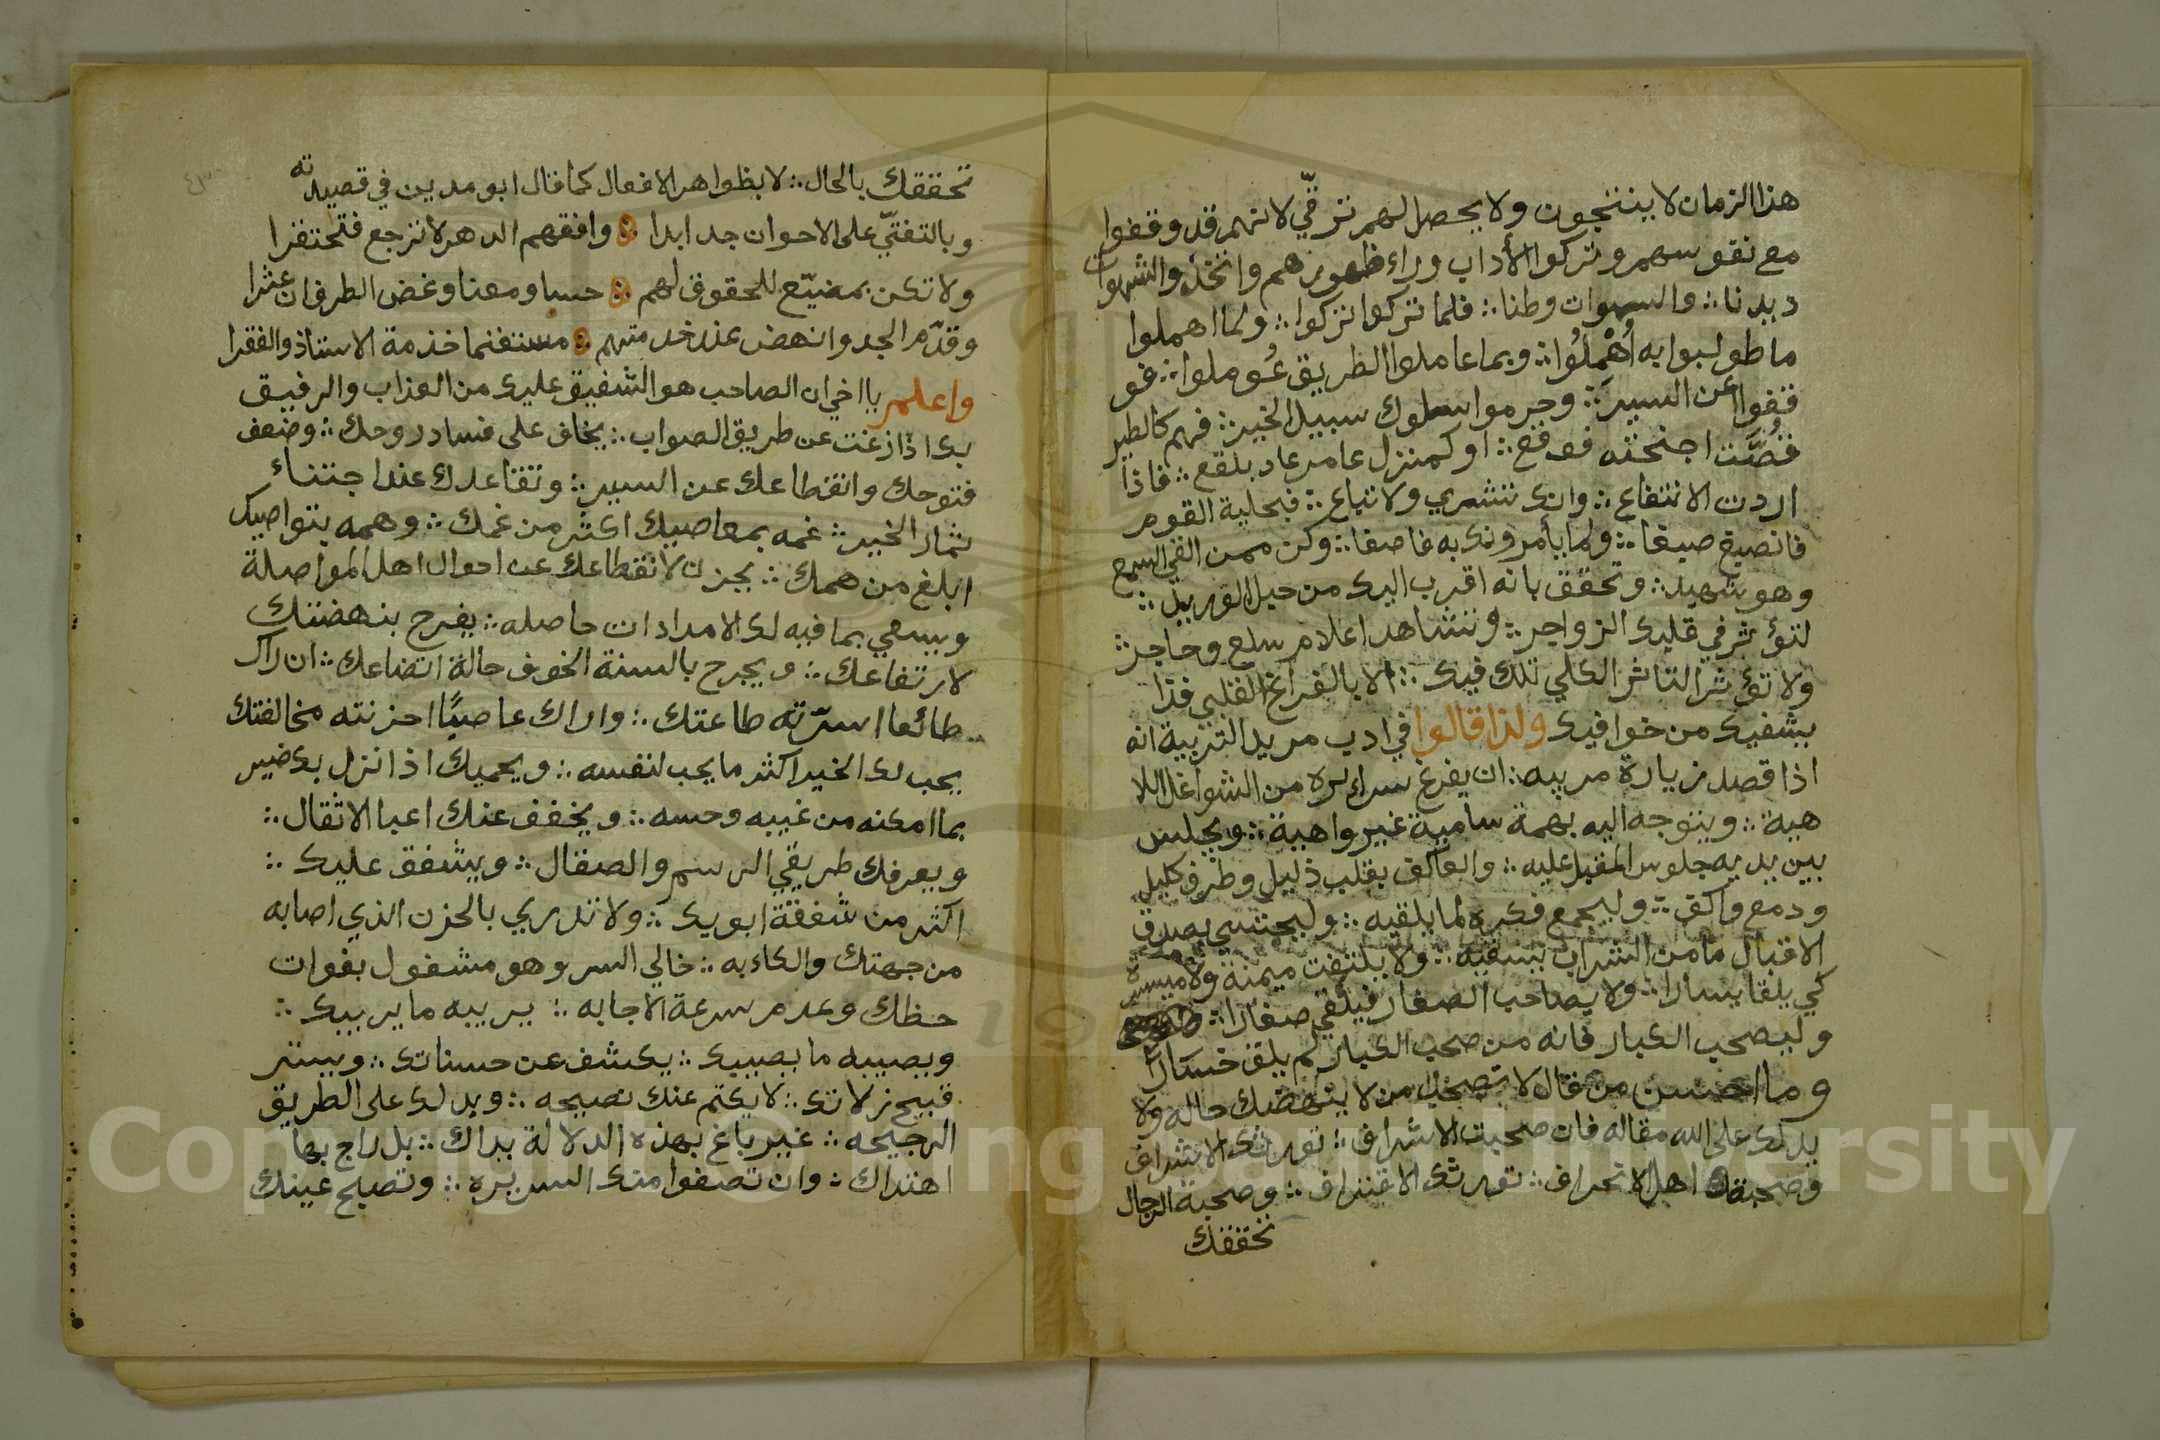 هذا الزمان لا ينتجون ولا يحصل لهم ترقّي لانهم قد وقفوا
مع نفوسهم وتركوا الأداب وراء ظهورهم واتخذوا الشهوات
ديدنا ؞ والسهوات وطنا ؞ فلما تركوا تركوا ؞ ولما اهملوا
ما طولبوا به أُهْمِلُوا ؞ وبما عاملوا الطريق عُوملوا ؞ فو
قفوا عن السير ؞ وحرموا سلوك سبيل الخير ؞ فهم كالطير
قُصَّت اجنحته فوقع ؞ او كمنزل عامر عاد بلقع ؞ فاذا
اردت الانتفاع ؞ وانك تشري ولا تباع ؞ فبحلية القوم
فانصبغ صبغا ؞ ولما يأمرونك به فاصغا ؞ وكن ممن القي السمع
وهو شهيد ؞ وتحقق بانه اقرب اليك من حبل الوريد ؞
لتؤثر في قلبك الزواجر ؞ وتشاهد اعلام سلع وحاجر ؞
ولا تؤثر التاثر الكلي تلك فيك ؞ الا بالفراغ القلبي فذا
يشفيك من خوافيك ولذا قالوا في ادب مريد التربية انه
اذا قصد زيارة مربيه ؞ ان يفرغ سرائره من الشواغل اللا
هية ؞ ويتوجه اليه بهمة سامية غير واهية ؞ ويجلس
بين يديه جلوس المقبل عليه ؞ والواقف بقلب ذليل وطرف كليل
ودمع واكف ؞ وليجمع فكره لما يلقيه ؞ وليحتسي بصدق
الاقبال ما من الشراب يسقيه ؞ ولا يلتفت ميمنة ولا ميسرة
كي يلقا يسارا ؞ ولا يصاحب الصغار فيلقي صغارا ؞
وليصحب الكبار فانه من صحب الكبار لم يلق خسارا
وما احسن من قال لا تصحب من لا ينهضك حاله ولا
يدلك على الله مقاله فان صحبت الاشراف ؞ تورثك الاشراف
وصحبة اهل الانحراف ؞ تورثك الاقتراف ؞ وصحبة الرجال
تحققك
تحققك بالحال ؞ لا بظواهر الافعال كما قال ابو مدين في قصيدته
وبالتفتّي على الاخوان جد ابدا ؞ وافقهم الدهر لا ترجع فتحتقرا
ولا تكن بمضيّع للحقوق لهم ؞ حسا ومعنا وغض الطرف ان عثرا
وقدّم الجد وانهض عند خدمتهم ؞ مستغنما خدمة الاستاذ والفقرا
واعلم يا اخي ان الصاحب هو الشفيق عليك من العذاب والرفيق
بك اذا زغت عن طريق الصواب ؞ يخاف على فساد روحك ؞ وضعف
فتوحك وانقطاعك عن السير ؞ وتقاعدك عند اجتناء
ثمار الخير ؞ غمه بمعاصيك اكثر من غمك ؞ وهمه بتواصيك
ابلغ من همك ؞ يحزن لانقطاعك عن احوال اهل المواصلة
ويسعي بما فيه لك الامدادات حاصله ؞ يفرح بنهضتك
لارتفاعك ؞ ويجرح بالسنة الخوف حالة اتضاعك ؞ ان راك
طائعا اسرّته طاعتك ؞ واراك عاصيًا احزنته مخالفتك
يحب لك الخير اكثر ما يحب لنفسه ؞ ويحميك اذا نزل بك ضير
بما امكنه من غيبه وحسه ؞ ويخفف عنك اعبا الاثقال ؞
ويعرفك طريقي الرسم والصقال ؞ ويشفق عليك ؞
اكثر من شفقة ابويك ؞ ولا تدري بالحزن الذي اصابه
من جهتك والكابه ؞ خالي السر وهو مشغول بفوات
حظك وعدم سرعة الاجابه ؞ يريبه ما يريبك ؞
ويصيبه ما يصيبك ؞ يكشف عن حسناتك ؞ ويستر
قبيح زلاتك ؞ لا يكتم عنك نصيحه ؞ ويدلك على الطريق
الرجيحه ؞ غير باغ بهذه الدلالة بداك ؞ بل راج بها
اهتداك ؞ وان تصفوا منك السريره ؞ وتصبح عينك
Copyright © King Saud University